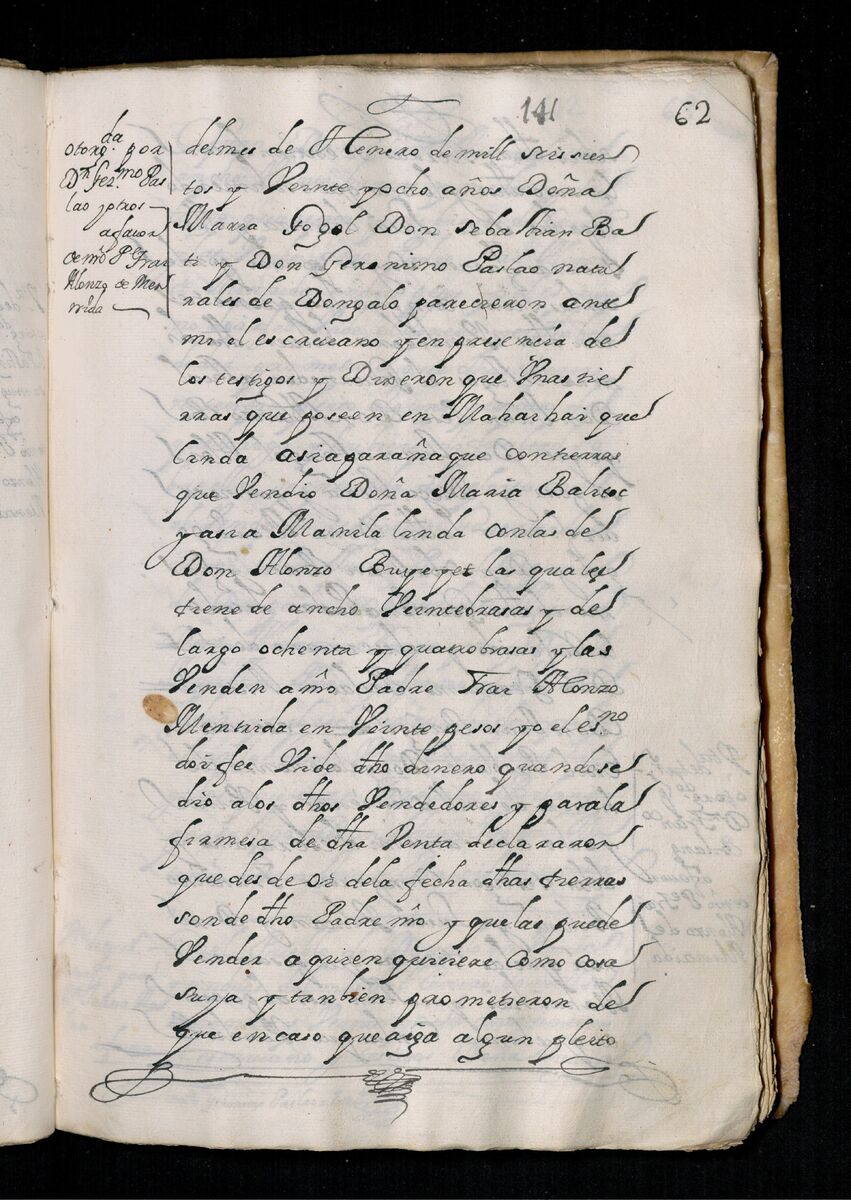 141
62
otorg.da por
Dn Ger.mo Pas
lao y otros
a favor
de mõ P. Frai
Alonzo de Men
trida
del mes de Henero de mill seissien
tos y Veinte y ocho años Doña
Maria Gogol Don Sebasthian Ba
ti y Don Geronimo Paslao natu
rales de Dongalo parecieron ante
mi el escrivano y en presencia de
los testigos y Dixeron que Unas tie
rras que poseen en Maharhar que
linda asia parañaque con tierras
que Vendio Doña Maria Balitoc
y asia Manila linda con las de
Don Alonzo Buyeyet las quales
tiene de ancho Veinte brasas y de
largo ochenta y quatro brasas y las
Venden a mõ Padre Frai Alonzo
Mentrida en Veinte pesos yo el es.no
doi fee Vide dho dinero quando se
dio a los dhos Vendedores y para la
firmesa de dha Venta declararon
que desde oi de la fecha dhas tierras
son de dho Padre mõ y que las puede
Vender a quien quiciere como cosa
suya y tanbien prometieron de
que en caso que aiga algun pleito